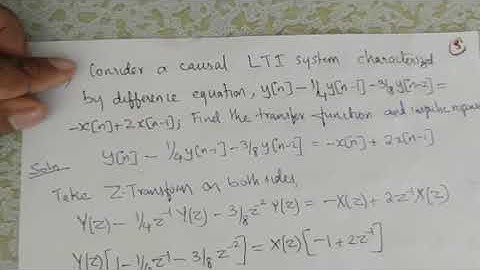 5
Consider a causal LTI system characterized
by difference equation, y[n] - 1/4 y[n-1] - 3/8 y[n-2] =
-x[n] + 2x[n-1]; Find the transfer function and impulse response
Soln
y[n] - 1/4 y[n-1] - 3/8 y[n-2] = -x[n] + 2x[n-1]
Take Z-Transform on both sides,
Y(z) - 1/4 z⁻¹ Y(z) - 3/8 z⁻² Y(z) = -X(z) + 2z⁻¹X(z)
Y(z)[1 - 1/4 z⁻¹ - 3/8 z⁻²] = X(z)[-1 + 2z⁻¹]